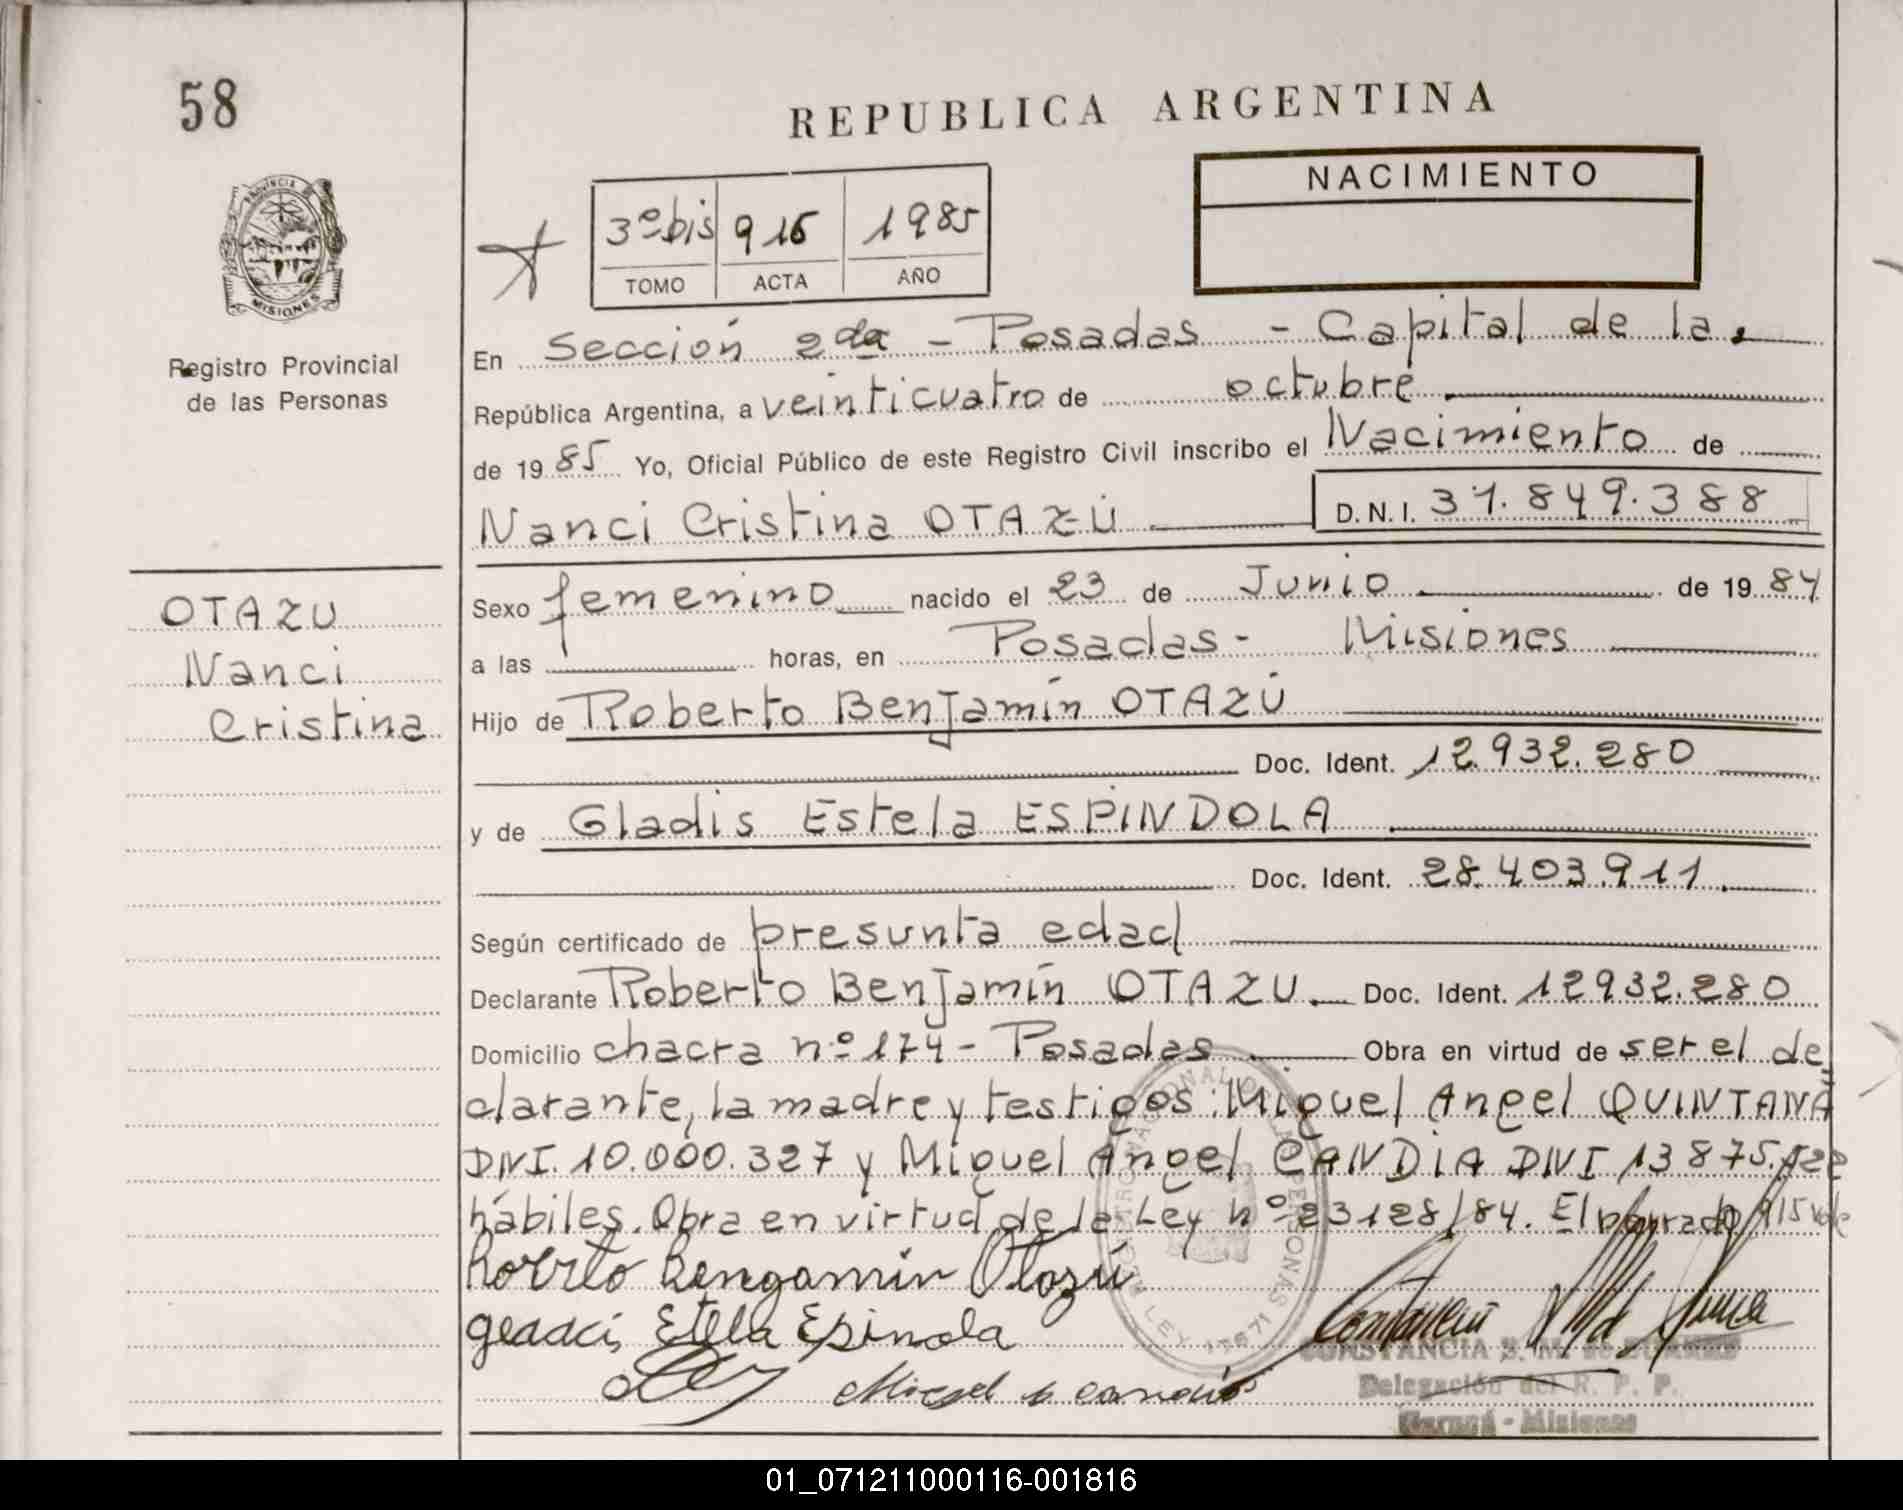 58
REPUBLICA ARGENTINA
PROVINCIA DE
MISIONES
Registro Provincial
de las Personas
3º bis 916 1985
TOMO ACTA AÑO
NACIMIENTO
En Sección 2da - Posadas - Capital de la
República Argentina, a veinticuatro de octubre
de 1985 Yo, Oficial Público de este Registro Civil inscribo el Nacimiento de
Nanci Cristina OTAZÚ D.N.I. 31.849.388
OTAZU
Nanci
Cristina
Sexo femenino nacido el 23 de Junio de 1984
a las horas, en Posadas - Misiones
Hijo de Roberto Benjamín OTAZÚ
Doc. Ident. 12.932.280
y de Gladis Estela ESPINDOLA
Doc. Ident. 28.403.911
Según certificado de presunta edad
Declarante Roberto Benjamín OTAZU. Doc. Ident. 12932.280
Domicilio chacra nº 174 - Posadas Obra en virtud de ser el de
clarante, la madre y testigos: Miguel Angel QUINTANA
DNI. 10.000.327 y Miguel Angel CANDIA DNI 13875.
hábiles. Obra en virtud de la Ley nº 23128/84. El
Roberto Bengamín Otazú
Estela Espinola
CONSTANCIA
Delegación del R. P. P.
Misiones
01_071211000116-001816